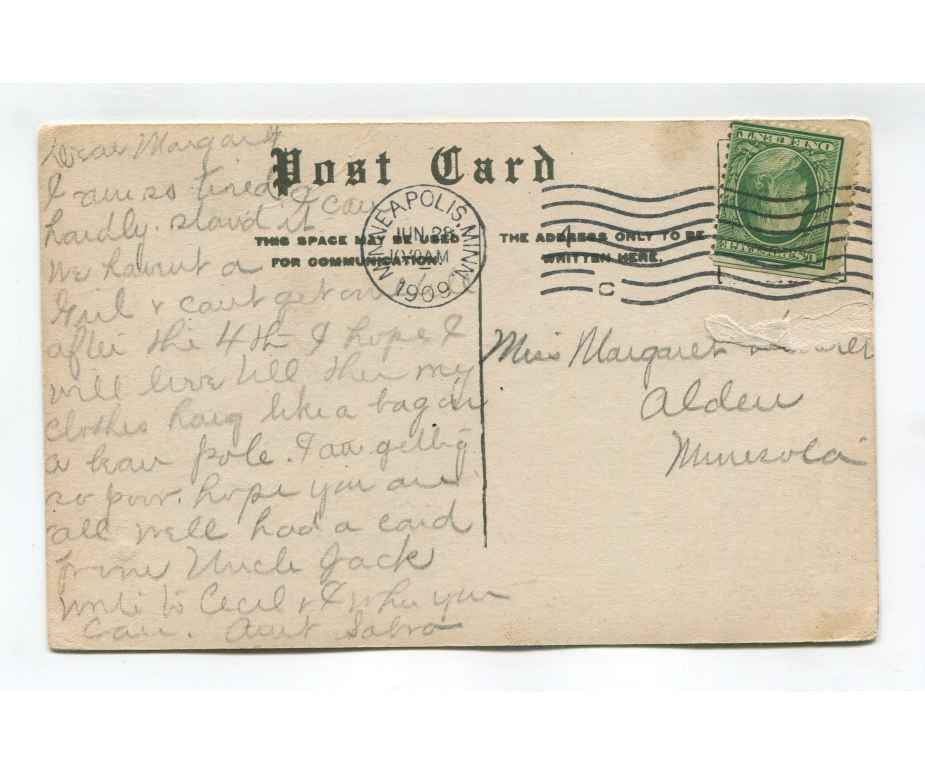 Post Card
THIS SPACE MAY BE USED
FOR COMMUNICATION.
THE ADDRESS ONLY TO BE
WRITTEN HERE.
MINNEAPOLIS, MINN.
JUN 28
AM
1909
C
ONE CENT
Dear Margaret
I am so tired I can
hardly stand it
We havent a
Girl & cant get one
after the 4th I hope I
will live till then my
clothes hang like a bag on
a bean pole. I am getting
so poor. hope you are
all well had a card
from Uncle Jack
write to Cecil & I when you
can. Aunt Sabra
Miss Margaret
Alden
Minesota